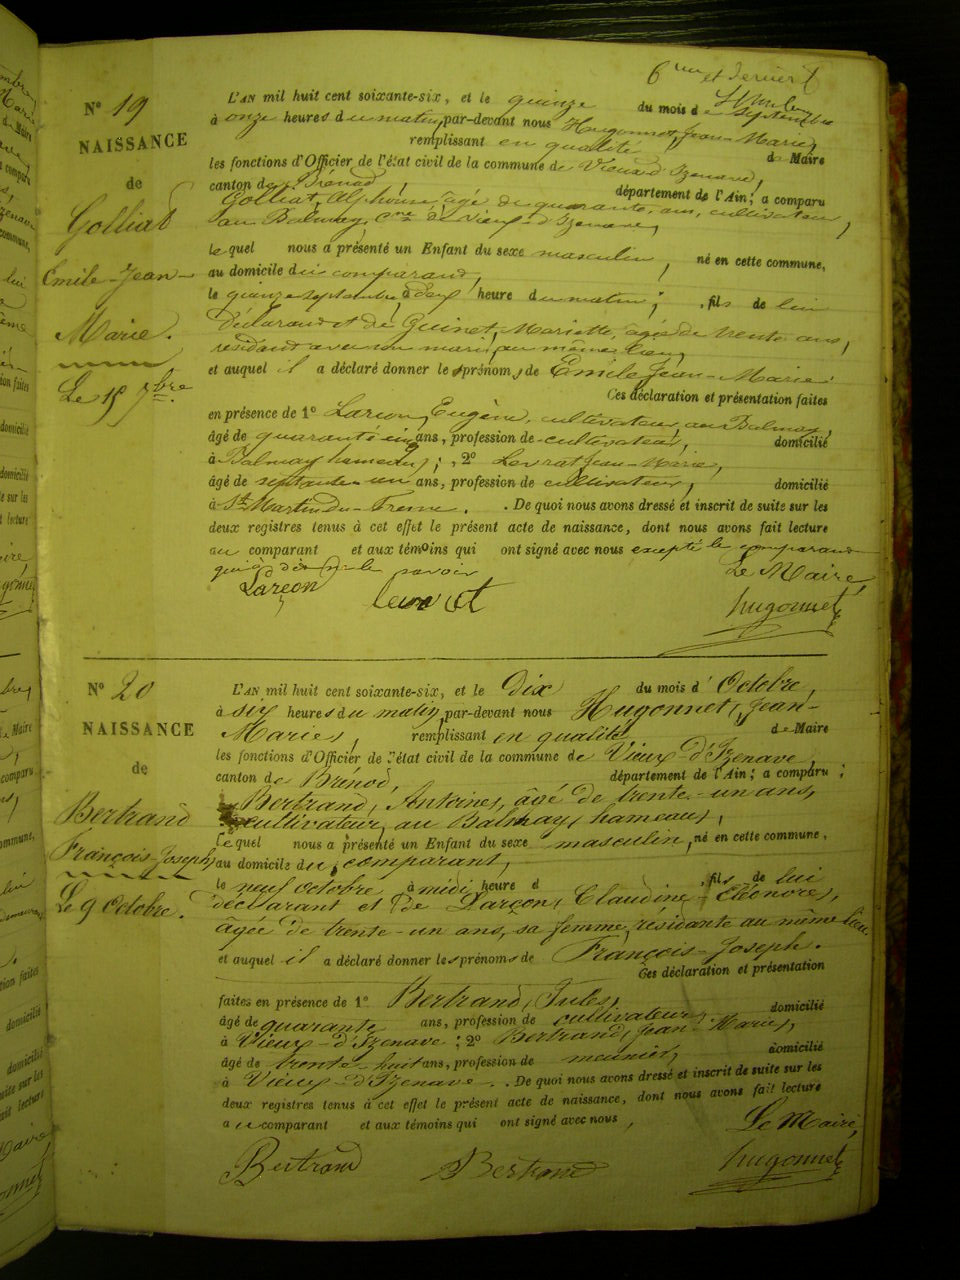 6me et dernier
N° 19
NAISSANCE
de
Golliat
Emile-Jean-
Marie.
Le 15 7bre.
L'AN mil huit cent soixante-six, et le quinze du mois de Septembre
à onze heures du matin, par-devant nous Hugonnet, Jean-Marie,
remplissant en qualité de Maire
les fonctions d'Officier de l'état civil de la commune de Vieux d'Izenave,
canton de Brénod, département de l'Ain; a comparu
Golliat, Alphonse, âgé de quarante ans, cultivateur,
au Balmay, Cne de Vieux-d'Izenave,
le quel nous a présenté un Enfant du sexe masculin, né en cette commune,
au domicile du comparant,
le quinze septembre, à deux heure du matin; fils de lui
déclarant et de Guinet, Mariette, âgée de trente ans,
résidant avec son mari, au même lieu,
et auquel il a déclaré donner les prénoms de Emile, Jean-Marie.
Ces déclaration et présentation faites
en présence de 1° Larçon, Eugène, cultivateur, au Balmay,
âgé de quarante cinq ans, profession de cultivateur, domicilié
à Balmay hameau; 2° Levrat Jean-Marie,
âgé de septante-un ans, profession de cultivateur, domicilié
à St Martin-du-Fresne. De quoi nous avons dressé et inscrit de suite sur les
deux registres tenus à cet effet le présent acte de naissance, dont nous avons fait lecture
au comparant et aux témoins qui ont signé avec nous excepté le comparant
qui a dit ne le savoir
Le Maire,
Larçon levrat hugonnet
N° 20
NAISSANCE
de
Bertrand
François-Joseph
Le 9 Octobre.
L'AN mil huit cent soixante-six, et le dix du mois d'Octobre,
à six heures du matin, par-devant nous Hugonnet, Jean-
Marie, remplissant en qualité de Maire
les fonctions d'Officier de l'état civil de la commune de Vieux-d'Izenave,
canton de Brénod, département de l'Ain; a comparu
Bertrand, Antoine, âgé de trente-un ans,
cultivateur, au Balmay, hameau,
le quel nous a présenté un Enfant du sexe masculin, né en cette commune,
au domicile du comparant,
le neuf octobre à midi heure d , fils de lui
déclarant et de Larçon, Claudine-Eléonore,
âgée de trente-un ans, sa femme, résidante au même lieu
et auquel il a déclaré donner les prénoms de François-Joseph.
Ces déclaration et présentation
faites en présence de 1° Bertrand, Jules,
âgé de quarante ans, profession de cultivateur, domicilié
à Vieux-d'Izenave; 2° Bertrand, Jean-Marie,
âgé de trente-huit ans, profession de meunier, domicilié
à Vieux-d'Izenave. De quoi nous avons dressé et inscrit de suite sur les
deux registres tenus à cet effet le présent acte de naissance, dont nous avons fait lecture
au comparant et aux témoins qui ont signé avec nous,
Le Maire,
Bertrand Bertrand hugonnet